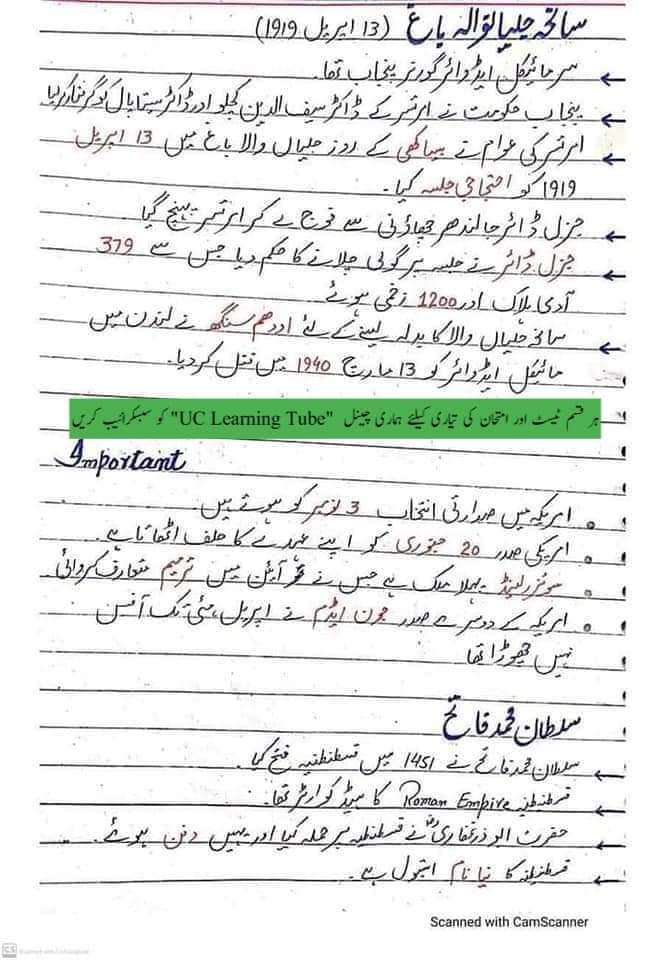 سانحہ جلیانوالہ باغ (13 اپریل 1919)
سر مائیکل ایڈوائر گورنر پنجاب تھا۔
پنجاب حکومت نے امرتسر کے ڈاکٹر سیف الدین کچلو اور ڈاکٹر ستیاپال کو گرفتار کر لیا
امرتسر کی عوام نے بیساکھی کے روز جلیاں والا باغ میں 13 اپریل
1919 کو احتجاجی جلسہ کیا۔
جنرل ڈائر جالندھر چھاؤنی سے فوج لے کر امرتسر پہنچ گیا
جنرل ڈائر نے جلسہ پر گولی چلانے کا حکم دیا جس سے 379
آدمی ہلاک اور 1200 زخمی ہوئے
سانحہ جلیاں والا کا بدلہ لینے کے لئے اودھم سنگھ نے لندن میں
مائیکل ایڈوائر کو 13 مارچ 1940 میں قتل کر دیا۔
ہر قسم ٹیسٹ اور امتحان کی تیاری کیلئے ہماری چینل "UC Learning Tube" کو سبسکرائیب کریں
Important
امریکہ میں صدارتی انتخاب 3 نومبر کو ہوتے ہیں
امریکی صدر 20 جنوری کو اپنے عہدے کا حلف اٹھاتا ہے۔
سوئزرلینڈ پہلا ملک ہے جس نے آئین میں ترمیم متعارف کروائی
امریکہ کے دوسرے صدر جون ایڈم نے اپریل، مئی تک آفس
نہیں چھوڑا تھا
سلطان محمد فاتح
سلطان محمد فاتح نے 1451 میں قسطنطنیہ فتح کیا۔
قسطنطنیہ Roman Empire کا ہیڈ کوارٹر تھا۔
حضرت ابو ذر غفاریؓ نے قسطنطنیہ پر حملہ کیا اور یہیں دفن ہوئے۔
قسطنطنیہ کا نیا نام استنبول ہے۔
Scanned with CamScanner
CS